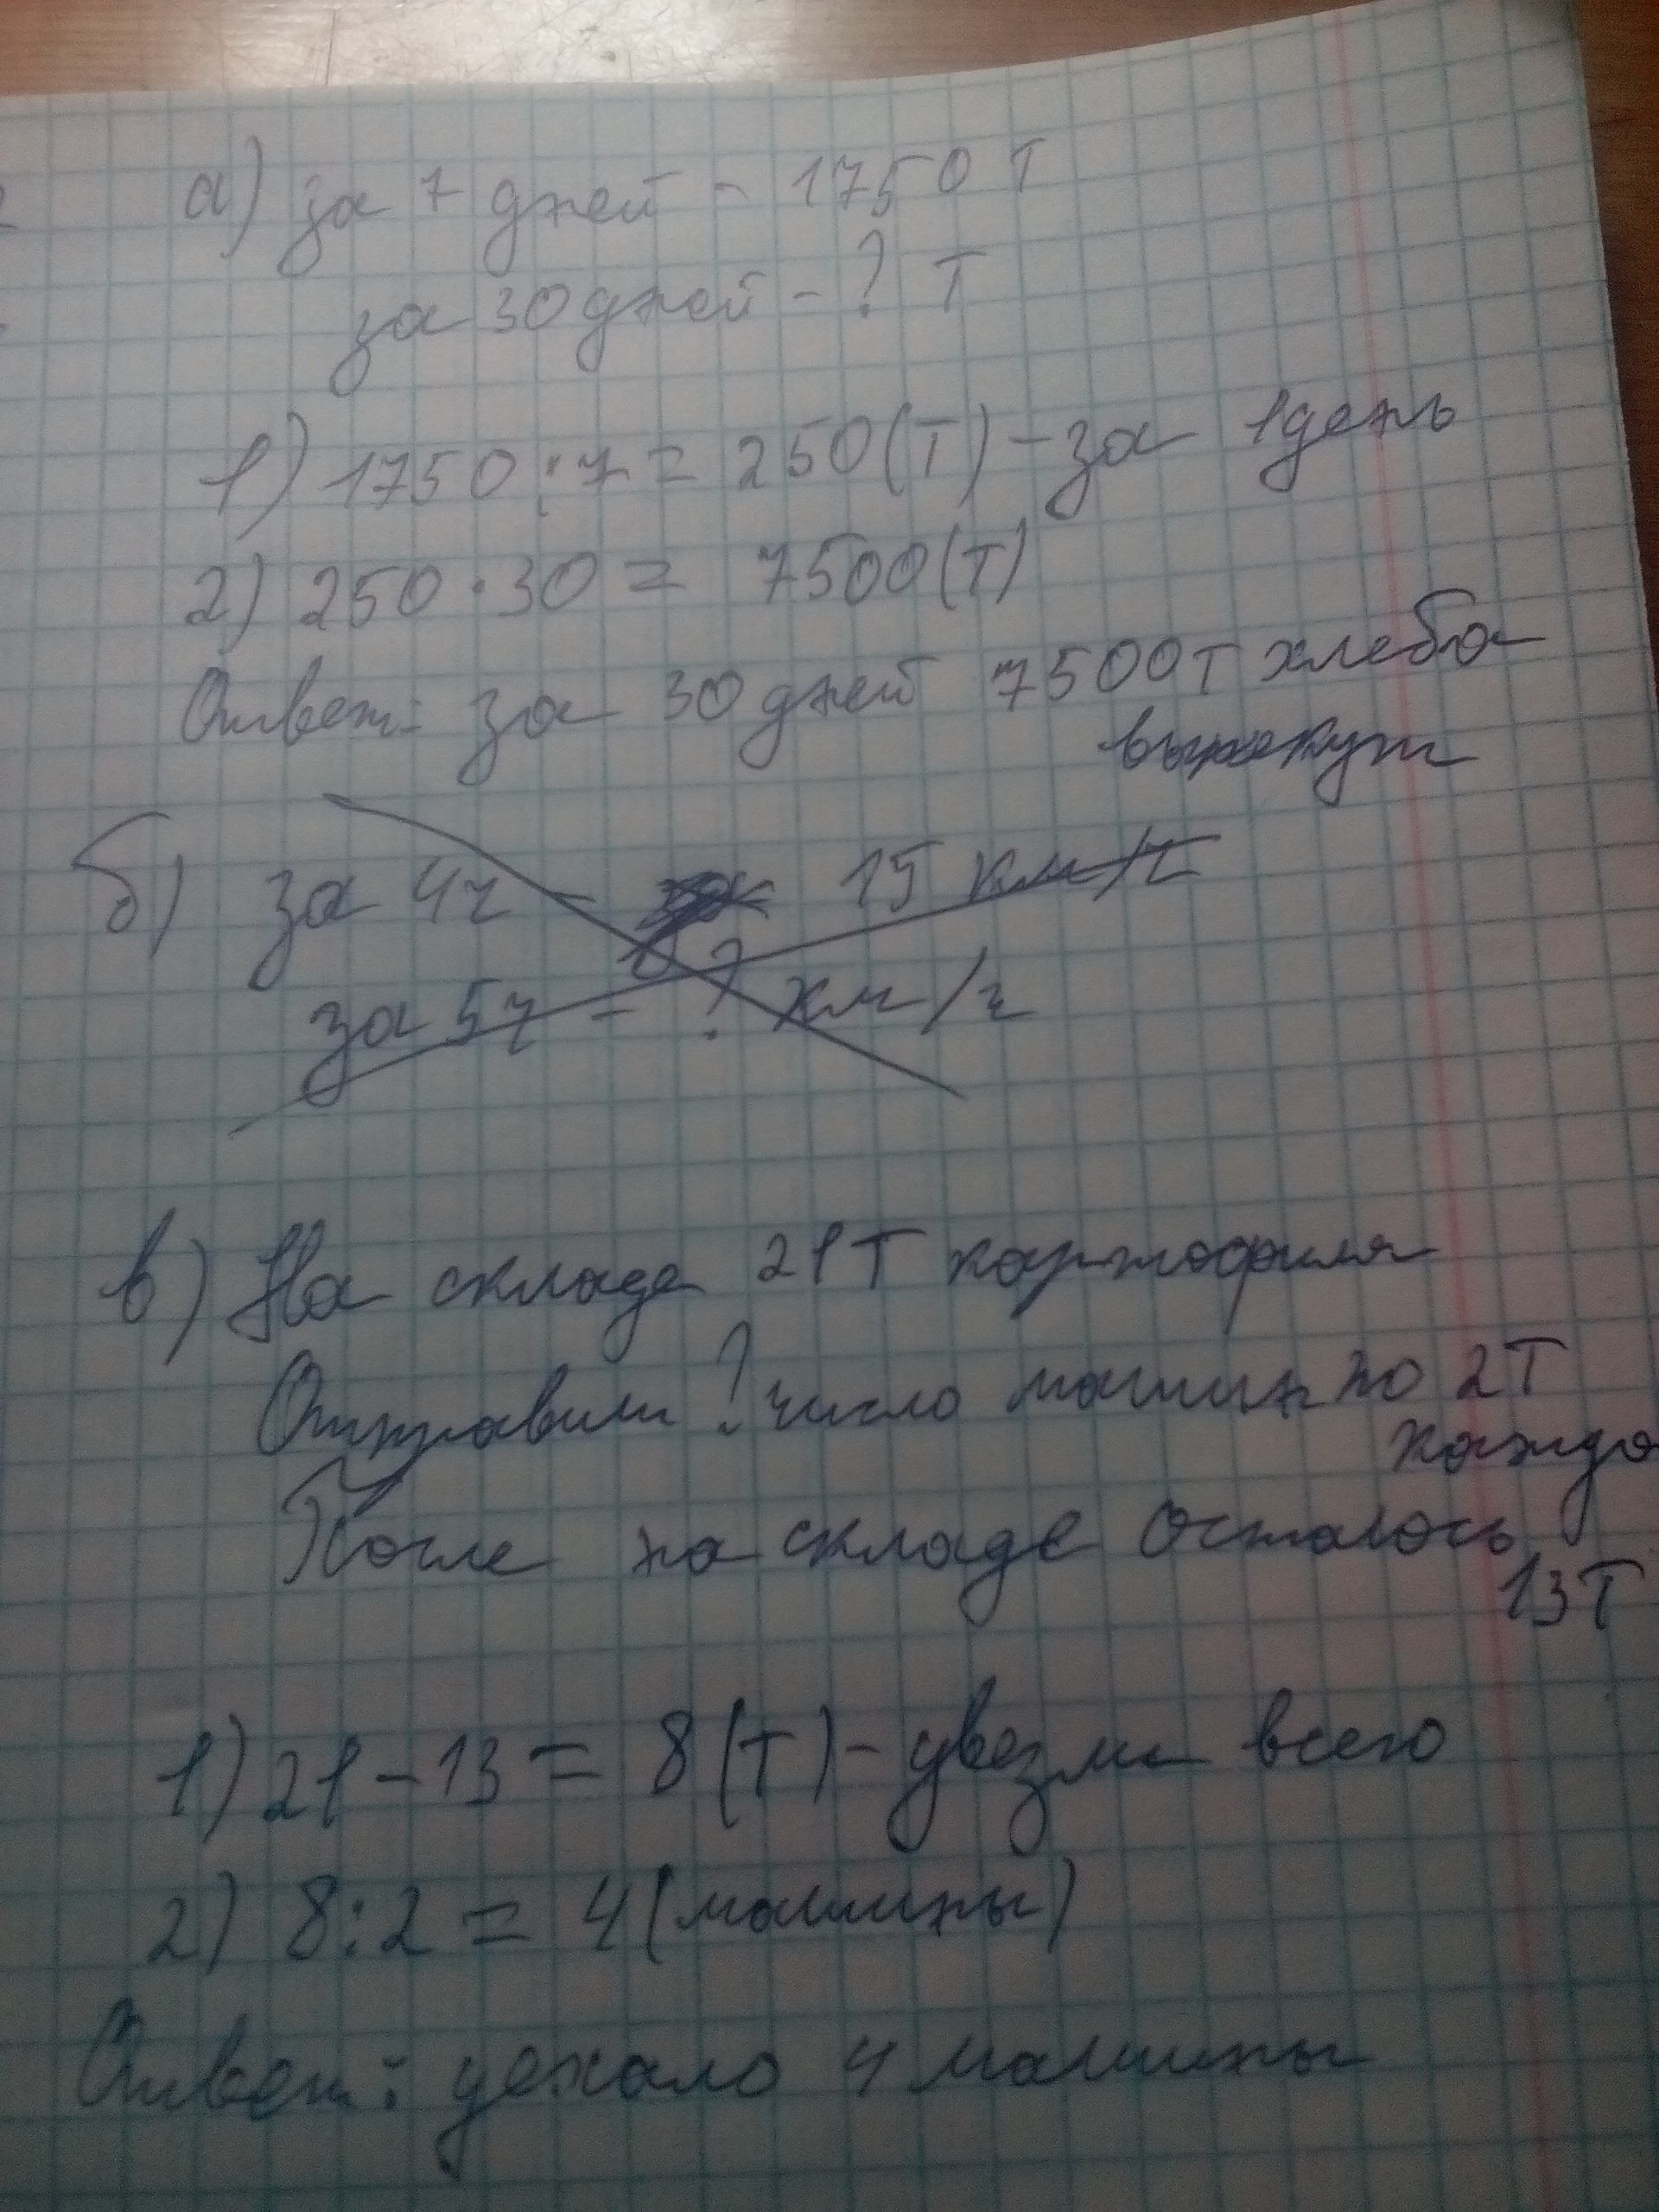 а) за 7 дней - 1750 т
за 30 дней - ? т
1) 1750 : 7 = 250 (т) - за 1 день
2) 250 · 30 = 7500 (т)
Ответ: за 30 дней 7500 т хлеба
выпекут
б) за 4ч - 15 км/ч
за 5ч - ? км/ч
в) На складе 21 т картофиля
Отправили ? число машин по 2 т
каждо
После на складе осталось
13 т
1) 21 - 13 = 8 (т) - увезли всего
2) 8 : 2 = 4 (машины)
Ответ: уехало 4 машины